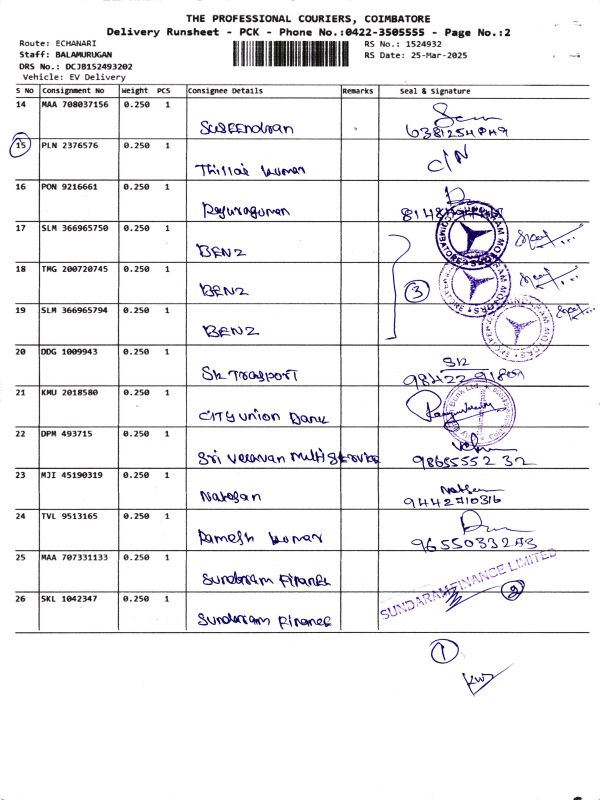 THE PROFESSIONAL COURIERS, COIMBATORE
Delivery Runsheet - PCK - Phone No.:0422-3505555 - Page No.:2
Route: ECHANARI
Staff: BALAMURUGAN
DRS No.: DCJB152493202
Vehicle: EV Delivery
RS No.: 1524932
RS Date: 25-Mar-2025
S No Consignment No Weight PCS Consignee Details Remarks Seal & Signature
14 MAA 708037156 0.250 1
SuSEENdran
15 PLN 2376576 0.250 1
Thillai Kumar C/N
16 PON 9216661 0.250 1
17 SLM 366965750 0.250 1
BENZ
18 TMG 200720745 0.250 1
BENZ
3
19 SLM 366965794 0.250 1
BENZ
20 DDG 1009943 0.250 1
SK TRASPORT
21 KMU 2018580 0.250 1
CITY UNION Bank
22 DPM 493715 0.250 1
Sri Velavan Multi Service
23 MJI 45190319 0.250 1
Natesan
9442710316
24 TVL 9513165 0.250 1
Ramesh Kumar
9655033273
25 MAA 707331133 0.250 1
Sundaram Finance
26 SKL 1042347 0.250 1
Sundaram Finance
SUNDARAM FINANCE LIMITED
2
1